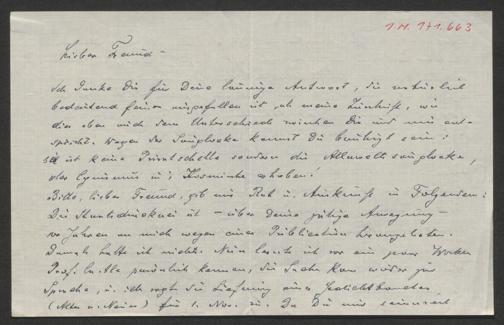 I.N. 171.663
Lieber Freund –
Ich danke Dir für Deine launige Antwort, die natürlich
bedeutend feiner ausgefallen ist, als meine Zuschrift, wie
dies eben auch dem Unterschied zwischen Dir und mir ent-
spricht. Wegen der Saugglocke kannst Du beruhigt sein:
es ist keine Privatschelle sondern die Allerweltssaugglocke,
des Cynismus in's Kosmische erhoben!
Bitte, lieber Freund, gib mir Rat u. Auskunft in Folgendem:
Die Staatsdruckerei ist – über Deine gütige Anregung –
vor Jahren an mich wegen einer Publication herangetreten.
Damals hatte ich nichts. Nun lernte ich vor ein paar Wochen
Prof. persönlich kennen, die Sache kam wieder zur
Sprache, u. ich sagte die Lieferung eines Gedichtbandes
(Altes u. Neues) für 1. Nov. zu. Da Du mir seinerzeit